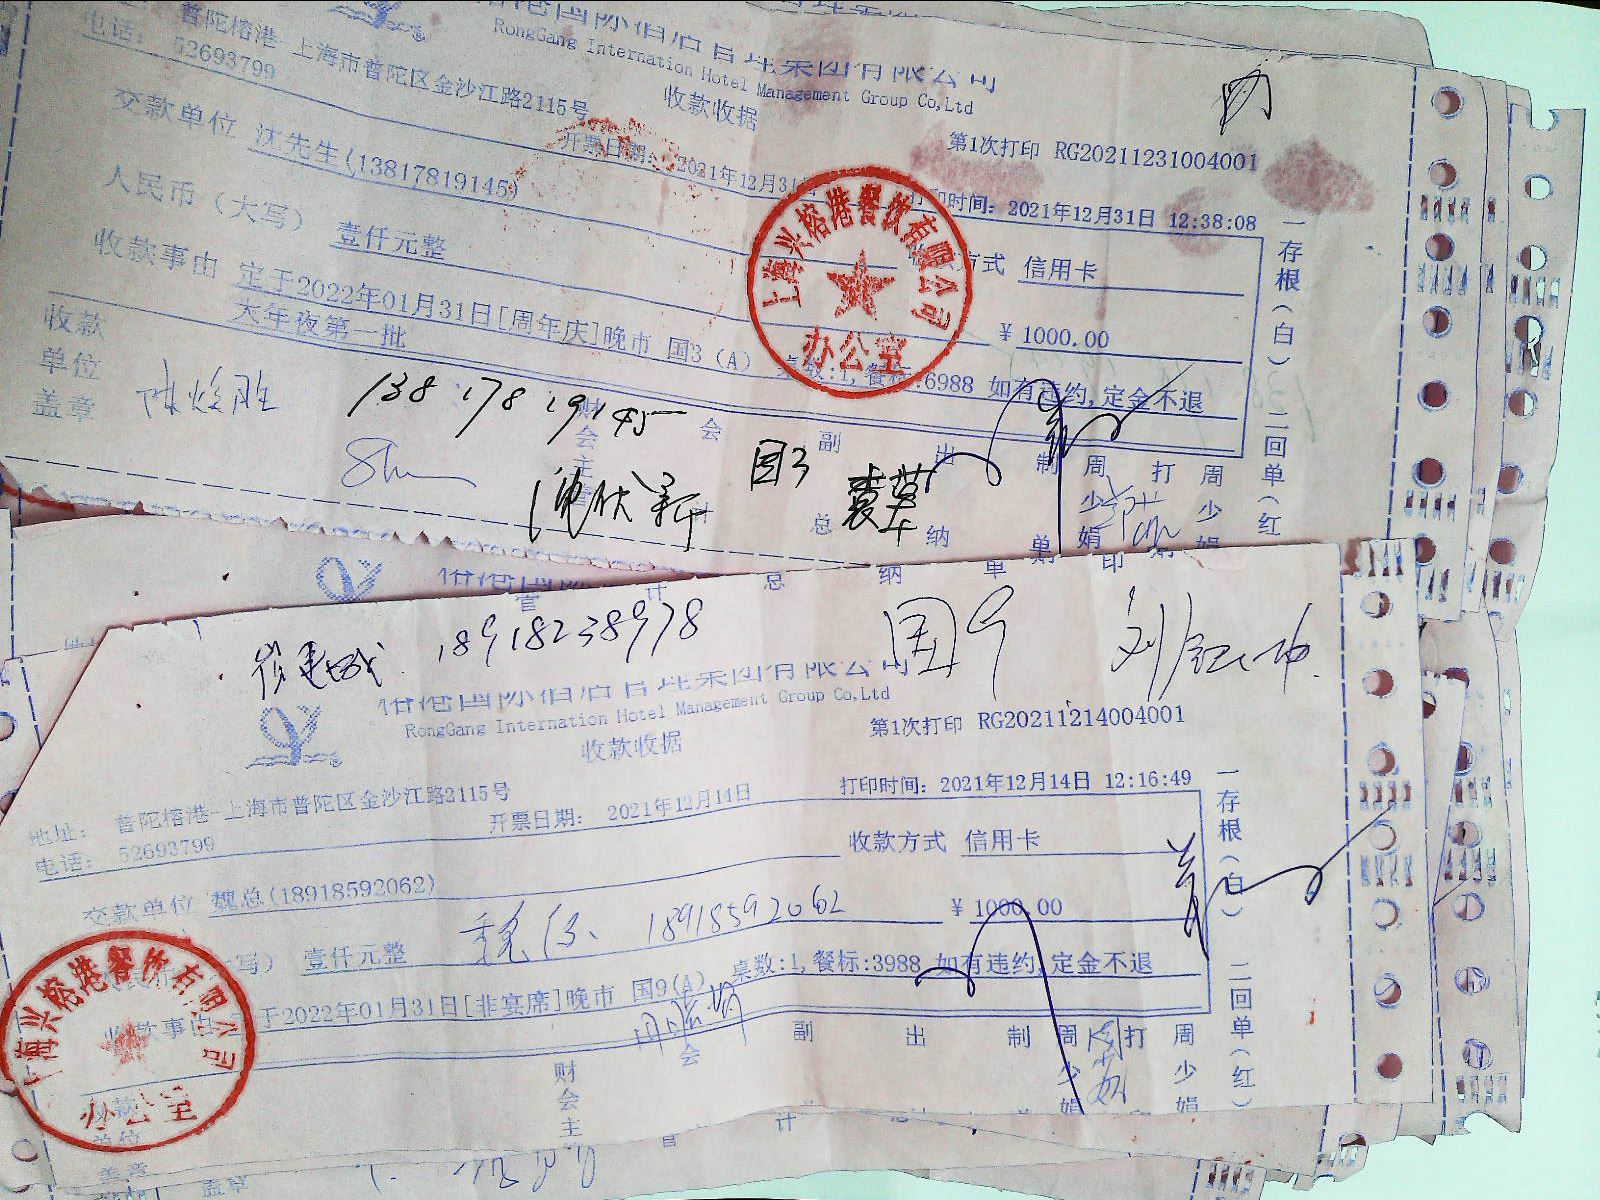 RongGang Internation Hotel Management Group Co,Ltd
收款收据
普陀榕港-上海市普陀区金沙江路2115号
电话： 52693799
第1次打印 RG20211231004001
开票日期： 2021年12月31日
打印时间：2021年12月31日 12:38:08
交款单位 沈先生(13817819145)
方式 信用卡
人民币（大写） 壹仟元整
￥1000.00
收款事由 定于2022年01月31日[周年庆]晚市 国3 (A) 桌数:1,餐标:6988 如有违约,定金不退
大年夜第一批
收款单位盖章
138 178 19145
国3
上海兴榕港餐饮有限公司
办公室
一存根(白) 二回单(红
会 副 出 制 周 打 周
财会主
总 纳 单 少娟 印 少娟
18918238978
国9
榕港国际酒店管理集团有限公司
RongGang Internation Hotel Management Group Co,Ltd
收款收据
第1次打印 RG20211214004001
地址： 普陀榕港-上海市普陀区金沙江路2115号
电话： 52693799
开票日期： 2021年12月14日
打印时间：2021年12月14日 12:16:49
交款单位 魏总(18918592062)
收款方式 信用卡
18918592062
￥1000.00
写） 壹仟元整
收款事由 定于2022年01月31日[非宴席]晚市 国9(A) 桌数:1,餐标:3988 如有违约,定金不退
上海兴榕港餐饮有限公司
办公室
一存根(白) 二回单(红)
财会主
会 副 出 制 周少娟 打 周少娟
单位
盖章